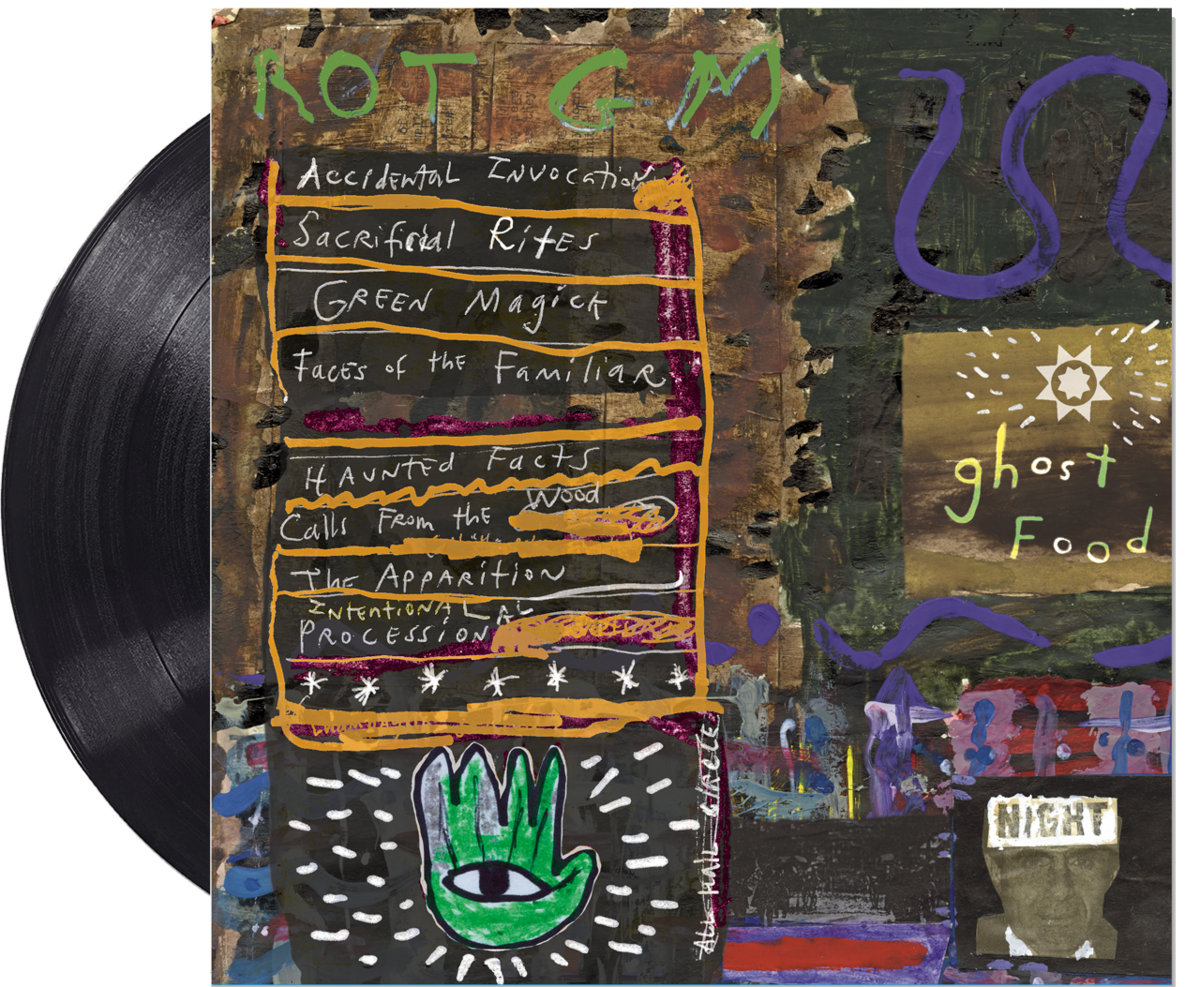 ROT GM
Accidental Invocation
Sacrificial Rites
Green Magick
Faces of the Familiar
Haunted Facts
Wood
Calls From the
The Apparition
Intentional
Procession
ghost
Food
NIGHT
All Hail Circle